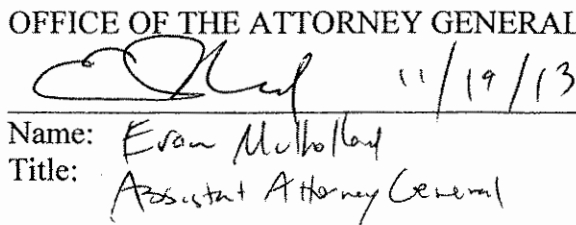 OFFICE OF THE ATTORNEY GENERAL
11/19/13
Name: Evan Mulholland
Title:
Assistant Attorney General